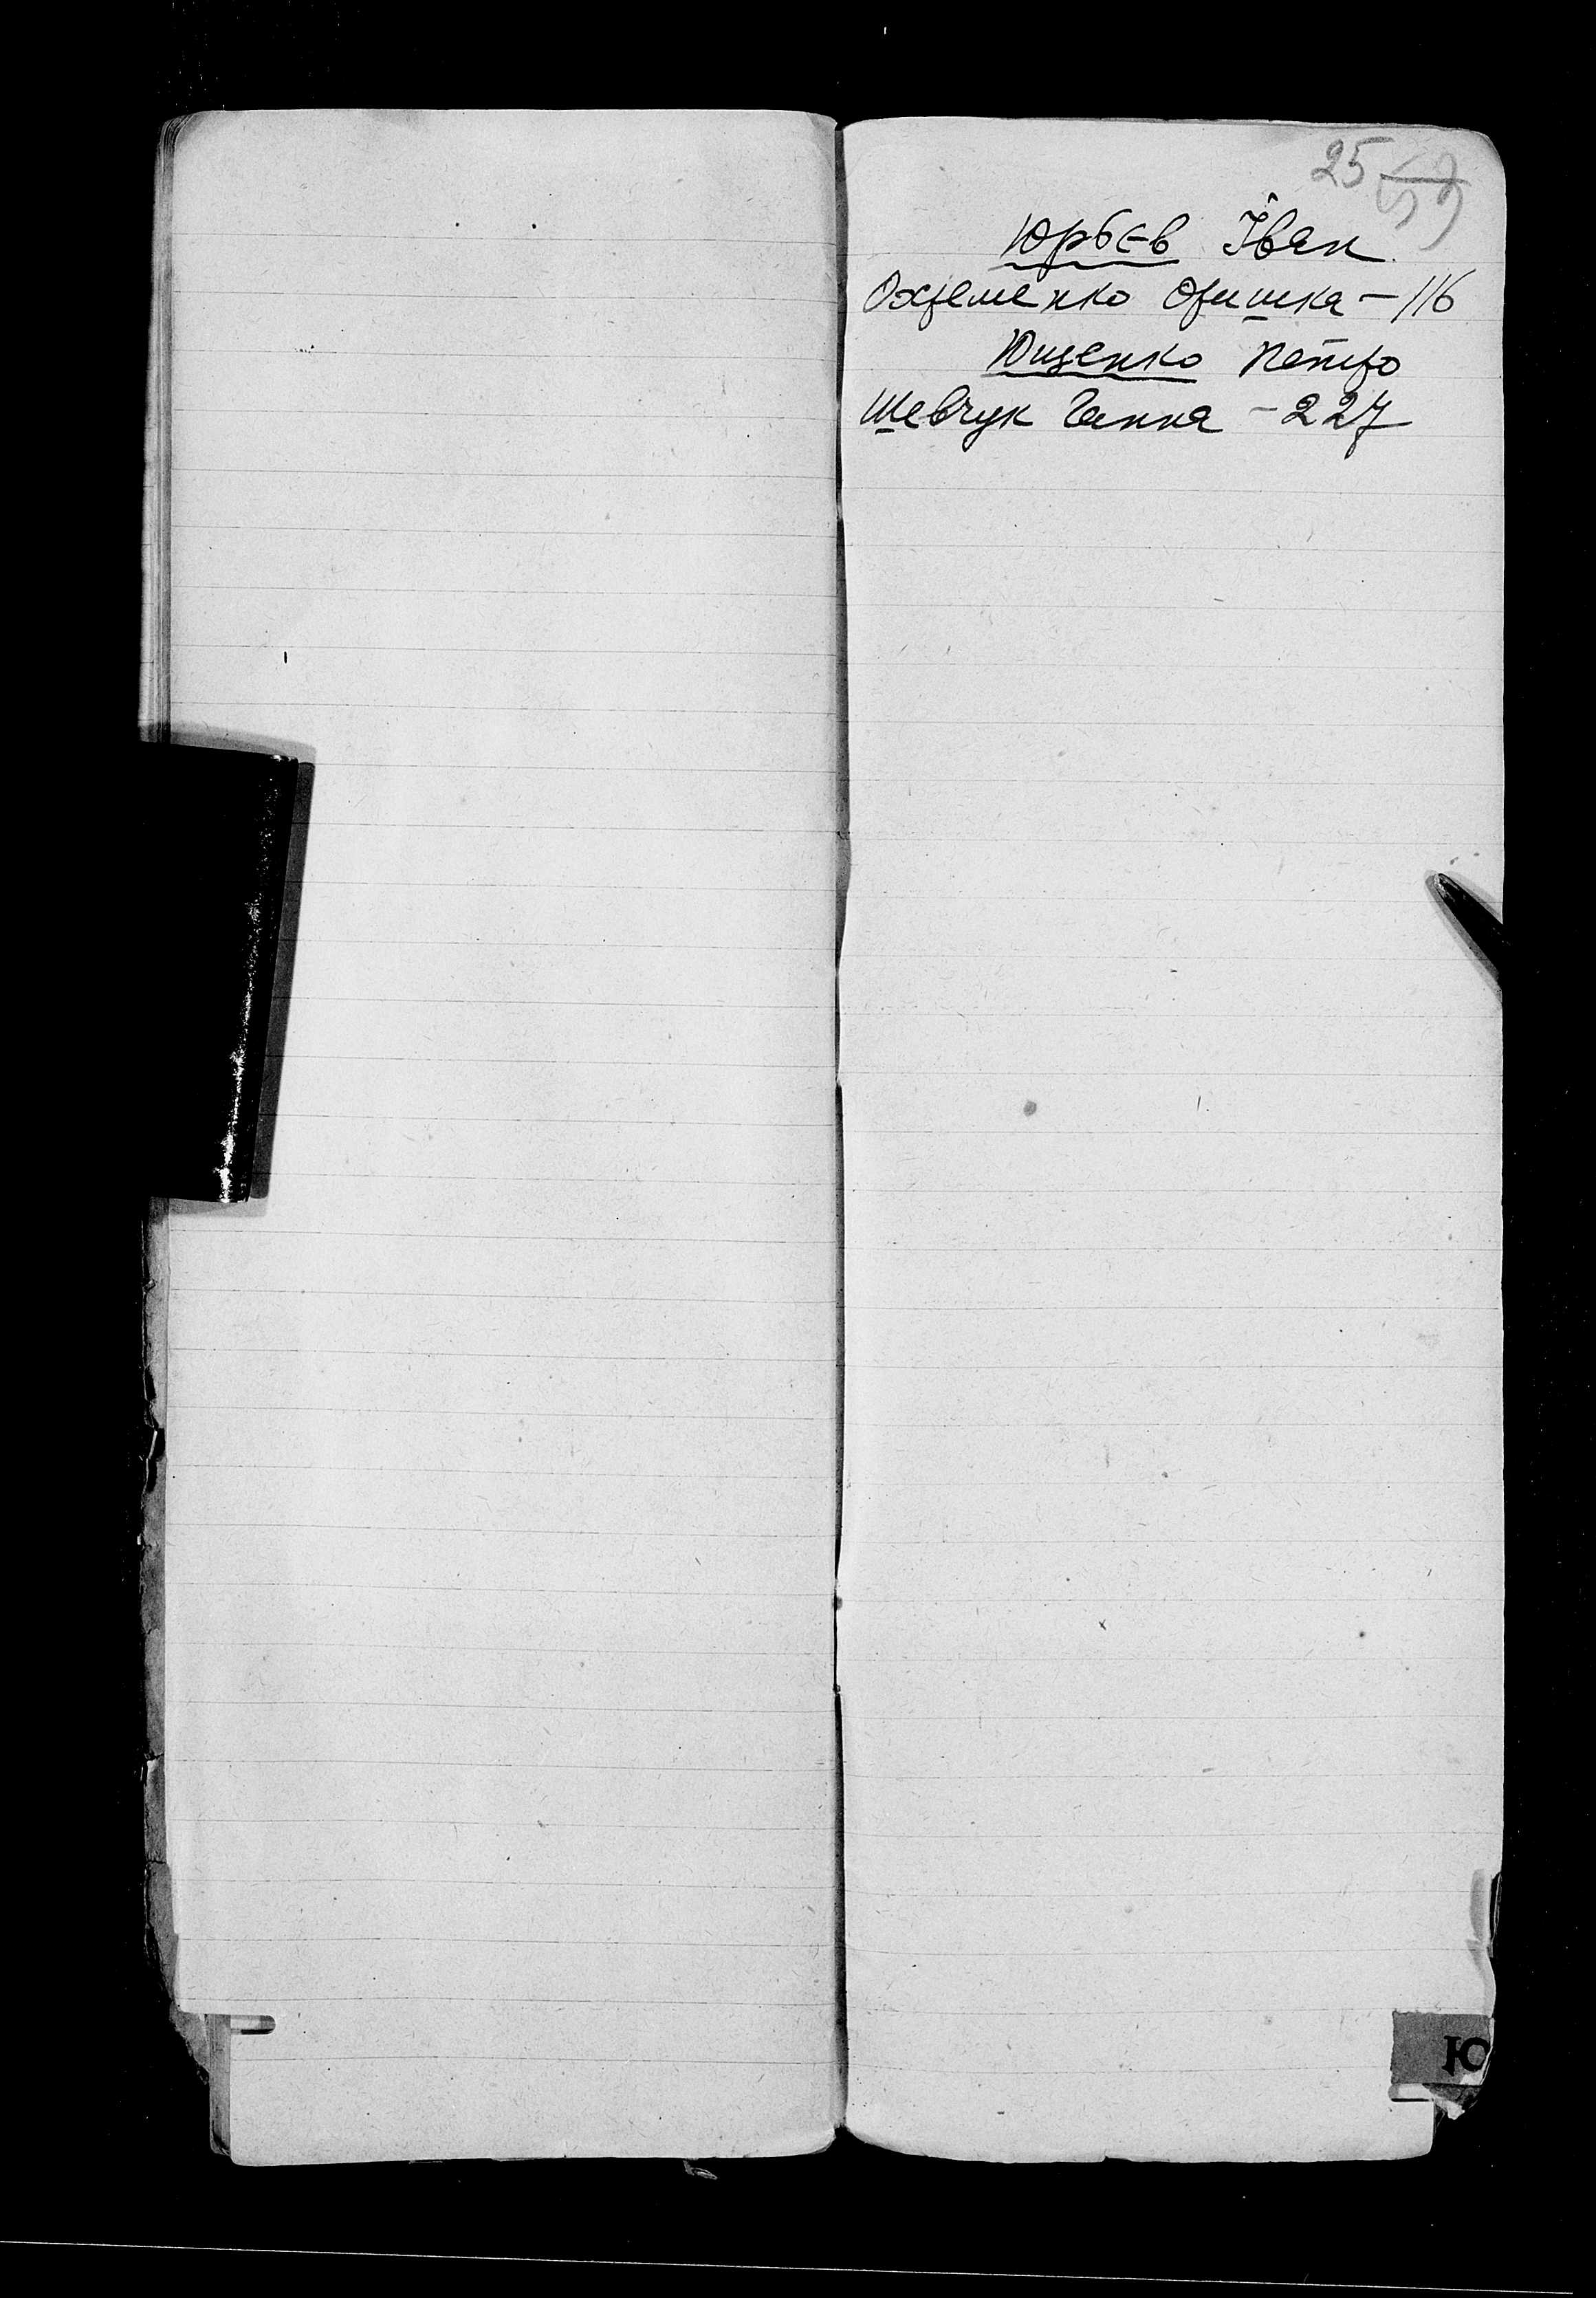 25
Юрбєв Іван
Охременко Оришка – 116
Ющенко Петро
Шевчук Ганна – 227
Ю